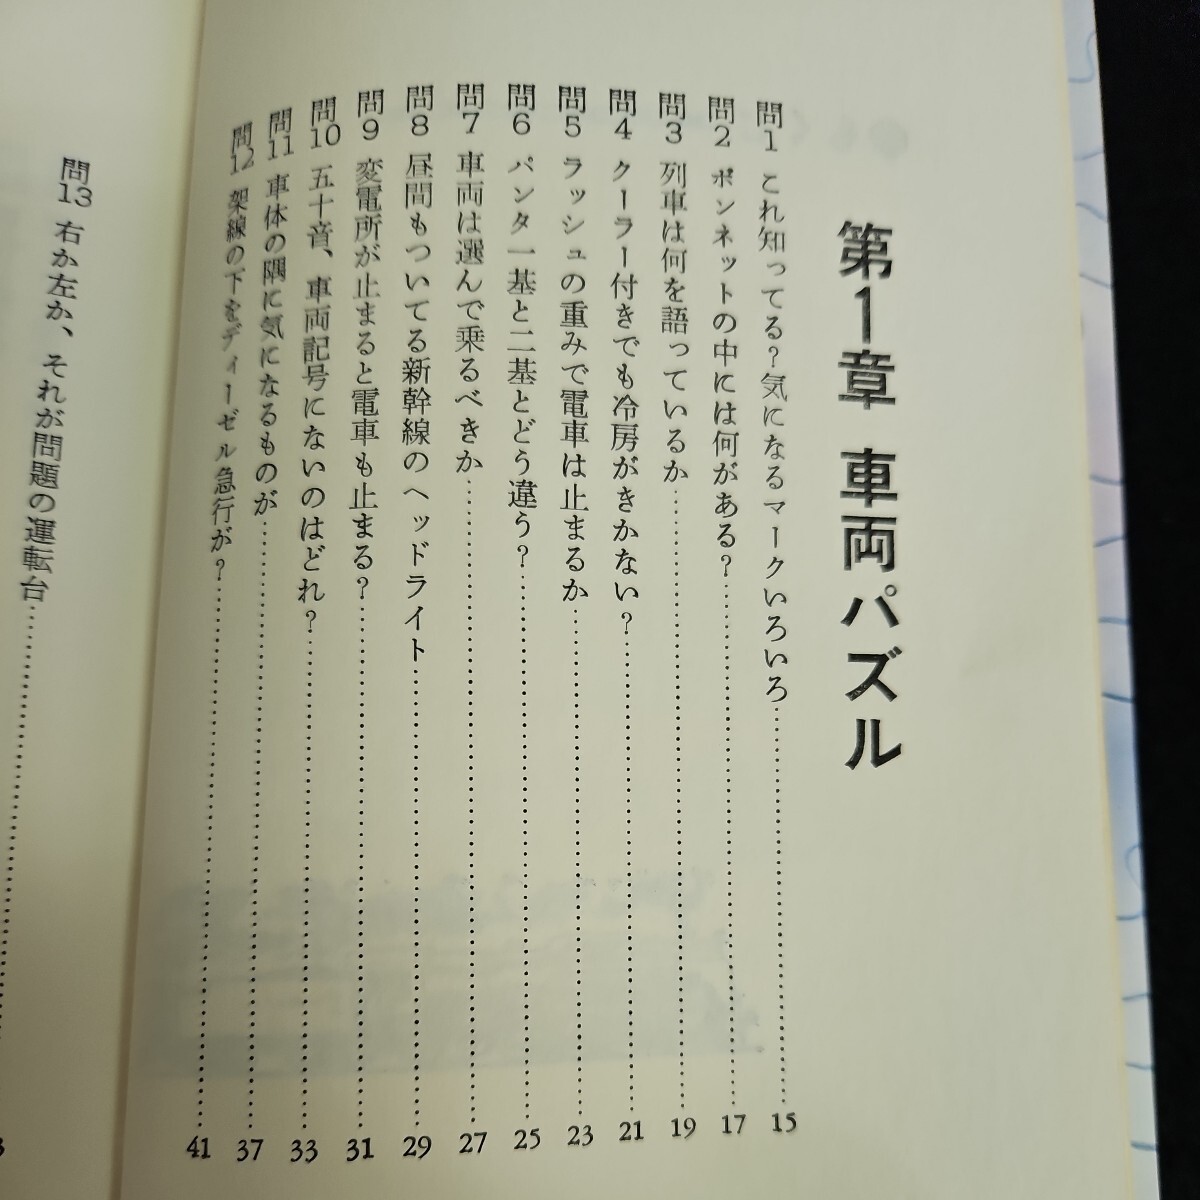 第1章 車両パズル
問1 これ知ってる?気になるマークいろいろ……15
問2 ボンネットの中には何がある?……17
問3 列車は何を語っているか……19
問4 クーラー付きでも冷房がきかない?……21
問5 ラッシュの重みで電車は止まるか……23
問6 パンタ一基と二基とどう違う?……25
問7 車両は選んで乗るべきか……27
問8 昼間もついてる新幹線のヘッドライト……29
問9 変電所が止まると電車も止まる?……31
問10 五十音、車両記号にないのはどれ?……33
問11 車体の隅に気になるものが……37
問12 架線の下をディーゼル急行が?……41
問13 右か左か、それが問題の運転台……